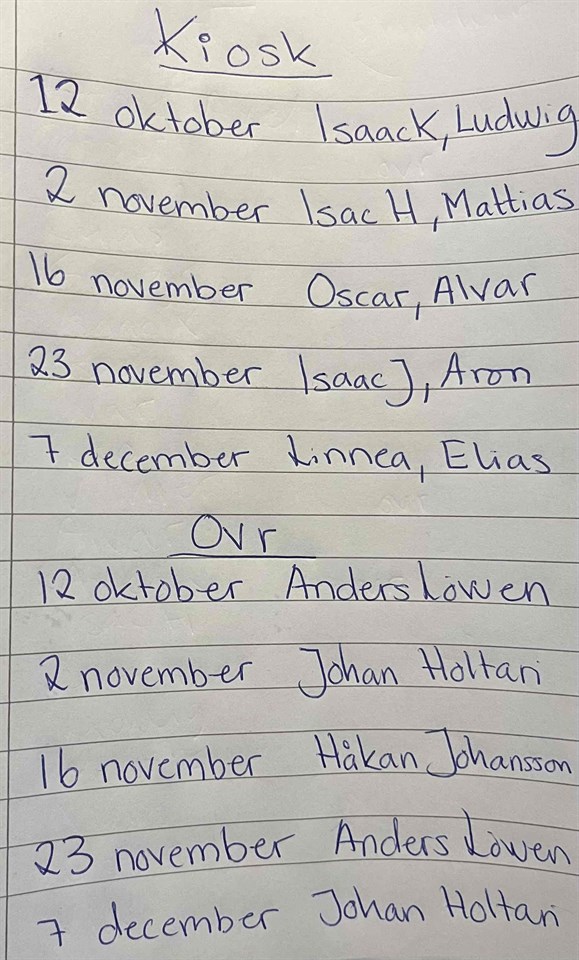 Kiosk
12 oktober Isaac K, Ludwig
2 november Isac H, Mattias
16 november Oscar, Alvar
23 november Isaac J, Aron
7 december Linnea, Elias
Ovr
12 oktober Anders Löwen
2 november Johan Holtari
16 november Håkan Johansson
23 november Anders Löwen
7 december Johan Holtari